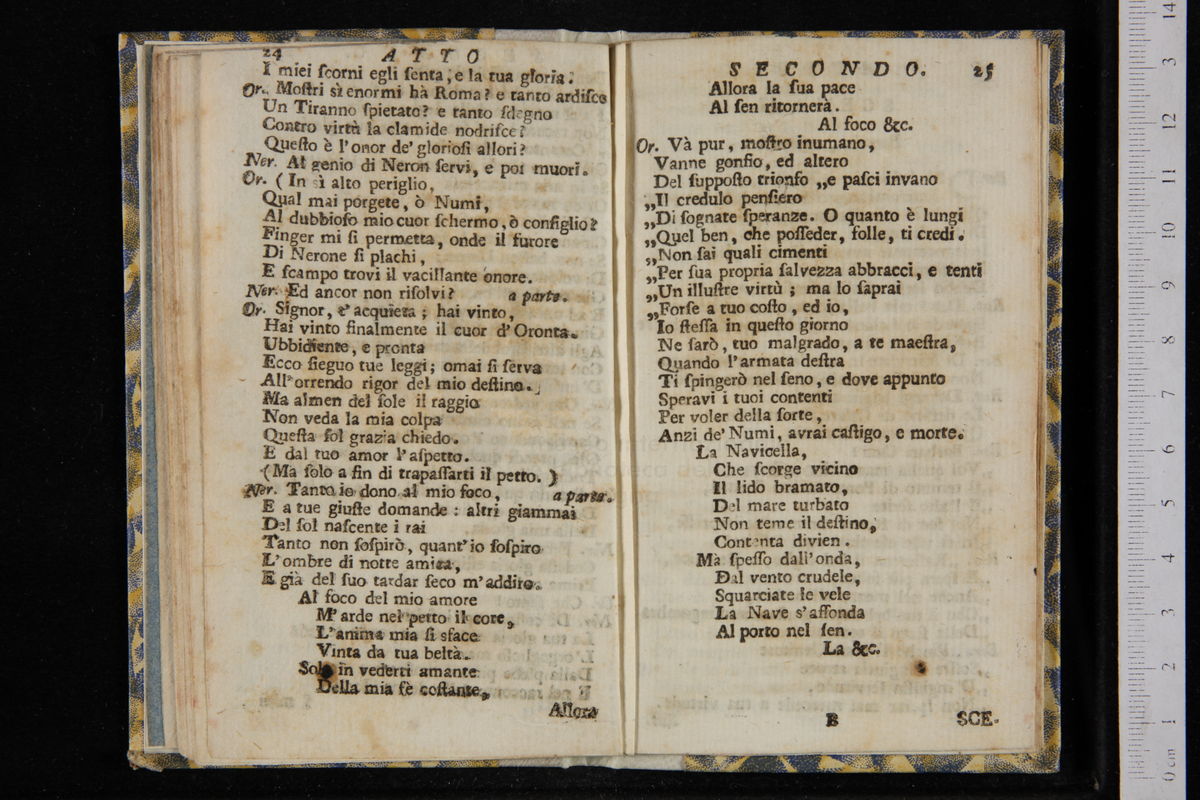 24 ATTO
I miei ſcorni egli ſenta, e la tua gloria.
Or. Moſtri sì enormi hà Roma? e tanto ardiſce
Un Tiranno ſpietato? e tanto ſdegno
Contro virtù la clamide nodriſce?
Queſto è l'onor de' glorioſi allori?
Ner. Al genio di Neron ſervi, e poi muori.
Or. (In sì alto periglio,
Qual mai porgete, ò Numi,
Al dubbioſo mio cuor ſchermo, ò conſiglio?
Finger mi ſi permetta, onde il furore
Di Nerone ſi plachi,
E ſcampo trovi il vacillante onore.
Ner. Ed ancor non riſolvi? a parte.
Or. Signor, t'acquieta; hai vinto,
Hai vinto finalmente il cuor d'Oronta.
Ubbidiente, e pronta
Ecco ſieguo tue leggi; omai ſi ſerva
All'orrendo rigor del mio deſtino.
Ma almen del ſole il raggio
Non veda la mia colpa
Queſta ſol grazia chiedo.
E dal tuo amor l'aſpetto.
(Ma ſolo a fin di trapaſſarti il petto.)
Ner. Tanto io dono al mio foco, a parte.
E a tue giuſte domande: altri giammai
Del ſol naſcente i rai
Tanto non ſoſpirò, quant'io ſoſpiro
L'ombre di notte amica,
E già del ſuo tardar ſeco m'addiro.
Al foco del mio amore
M'arde nel petto il core,
L'anima mia ſi sface
Vinta da tua beltà.
Solo in vederti amante
Della mia fè coſtante,
Allora
SECONDO. 25
Allora la ſua pace
Al ſen ritornerà.
Al foco &c.
Or. Và pur, moſtro inumano,
Vanne gonfio, ed altero
Del ſuppoſto trionfo „e paſci invano
„Il credulo penſiero
„Di ſognate ſperanze. O quanto è lungi
„Quel ben, che poſſeder, folle, ti credi.
„Non ſai quali cimenti
„Per ſua propria ſalvezza abbracci, e tenti
„Un illuſtre virtù; ma lo ſaprai
„Forſe a tuo coſto, ed io,
Io ſteſſa in queſto giorno
Ne ſarò, tuo malgrado, a te maeſtra,
Quando l'armata deſtra
Ti ſpingerò nel ſeno, e dove appunto
Speravi i tuoi contenti
Per voler della ſorte,
Anzi de' Numi, avrai caſtigo, e morte.
La Navicella,
Che ſcorge vicino
Il lido bramato,
Del mare turbato
Non teme il deſtino,
Contenta divien.
Ma ſpeſſo dall'onda,
Dal vento crudele,
Squarciate le vele
La Nave s'affonda
Al porto nel ſen.
La &c.
B SCE-
0 cm 1 2 3 4 5 6 7 8 9 10 11 12 13 14